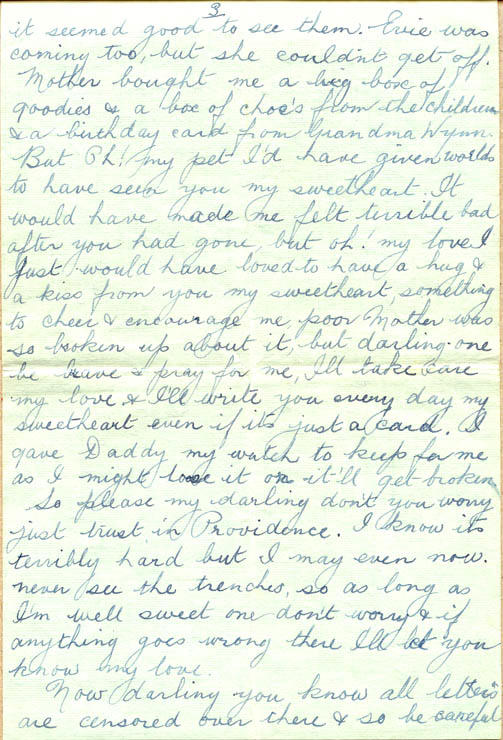 3
it seemed good to see them. Evie was
coming too, but she couldn't get off.
Mother bought me a big box of
goodies & a box of choc's from the children
& a birthday card from Grandma Wynn.
But Oh! my pet I'd have given worlds
to have seen you my sweetheart. It
would have made me felt terrible bad
after you had gone, but oh! my love I
just would have loved to have a hug &
a kiss from you my sweetheart, something
to cheer & encourage me, poor Mother was
so broken up about it, but darling one
be brave & pray for me, I'll take care
my love & I'll write you every day my
sweetheart even if it's just a card. I
gave Daddy my watch to keep for me
as I might lose it or it'll get broken
So please my darling don't you worry
just trust in Providence. I know its
terribly hard but I may even now.
never see the trenches, so as long as
I'm well sweet one don't worry & if
anything goes wrong there I'll let you
know my love.
Now darling you know all letters
are censored over there & so be careful